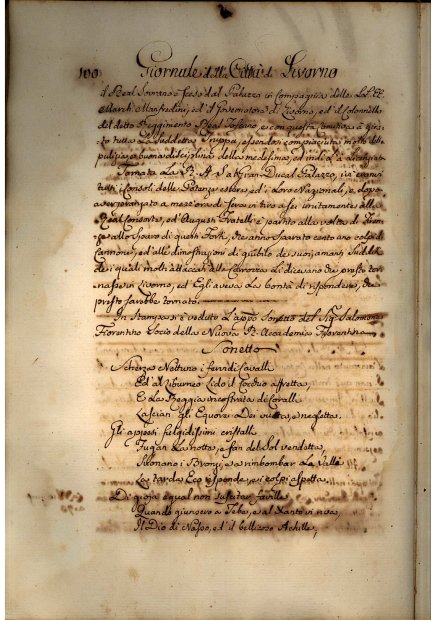 100 Giornale della Città di Livorno
il Real Sovrano è sceso dal Palazzo in compagnia delle LL. EE.
March. Manfredini, ed il Governatore di Livorno, ed il Colonnello
del detto Reggimento Real Toscano, e con questa comitiva à gira-
to tutta la suddetta Truppa, essendosi compiaciuta molto della
pulizia, e buona disciplina della medesima, ed indi
Tornata La R. A. S. al Gran Ducal Palazzo, ivi erano
tutti i Consoli delle Potenze estere ed i loro Nazionali, e dopo
aver pranzato a mezz'ora di sera in tiro a sei unitamente alla
Real Consorte, ed Augusti Fratelli è partito alla volta di Firen-
ze allo sparo di queste Forti, che anno sparato cento uno colpi di
Cannone, ed alle dimostrazioni di giubilo dei suoi amati Sudditi,
dei quali molti attaccati alla Carrozza Li dicevano che presto tor-
nasse in Livorno, ed Egli aveva la bontà di rispondere, che
presto sarebbe tornato.
In Stampa si è veduto L'appo Sonetto del Sig. Salomone
Fiorentino Socio della Nuova R. Accademia Fiorentina
Sonetto
Scherza Nettuno i fervidi Cavalli
Ed al Liburneo Lido il Cocchio affretta,
E La Reggia incrostata di Coralli
Lascian gli Equorei Dei vuota, e negletta.
Gli appesi fulgidissimi cristalli
Fugan La notte, e fan del Sol vendetta,
Suonano i Bronzi, e a rimbombar La Valle
La tarda Eco risponde, e i colpi aspetta.
Di gioja egual non suscitar faville
Quando giunsero a Tebe, e al Xanto in riva
Il Dio di Nasso, ed il bellicoso Achille,